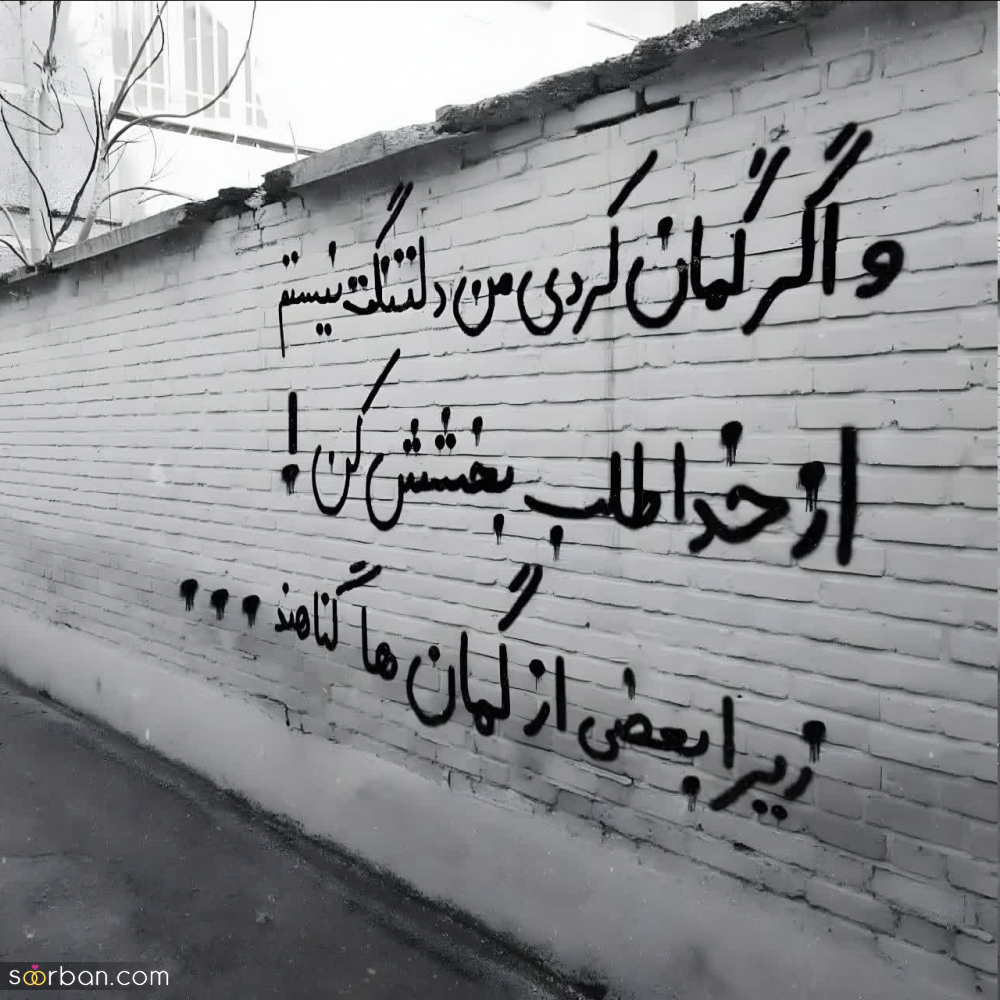 و اگر گمان کردی من دلتنگت نیستم
از خدا طلب بخشش کن!
زیرا بعضی از گمان ها گناهند...
soorban.com